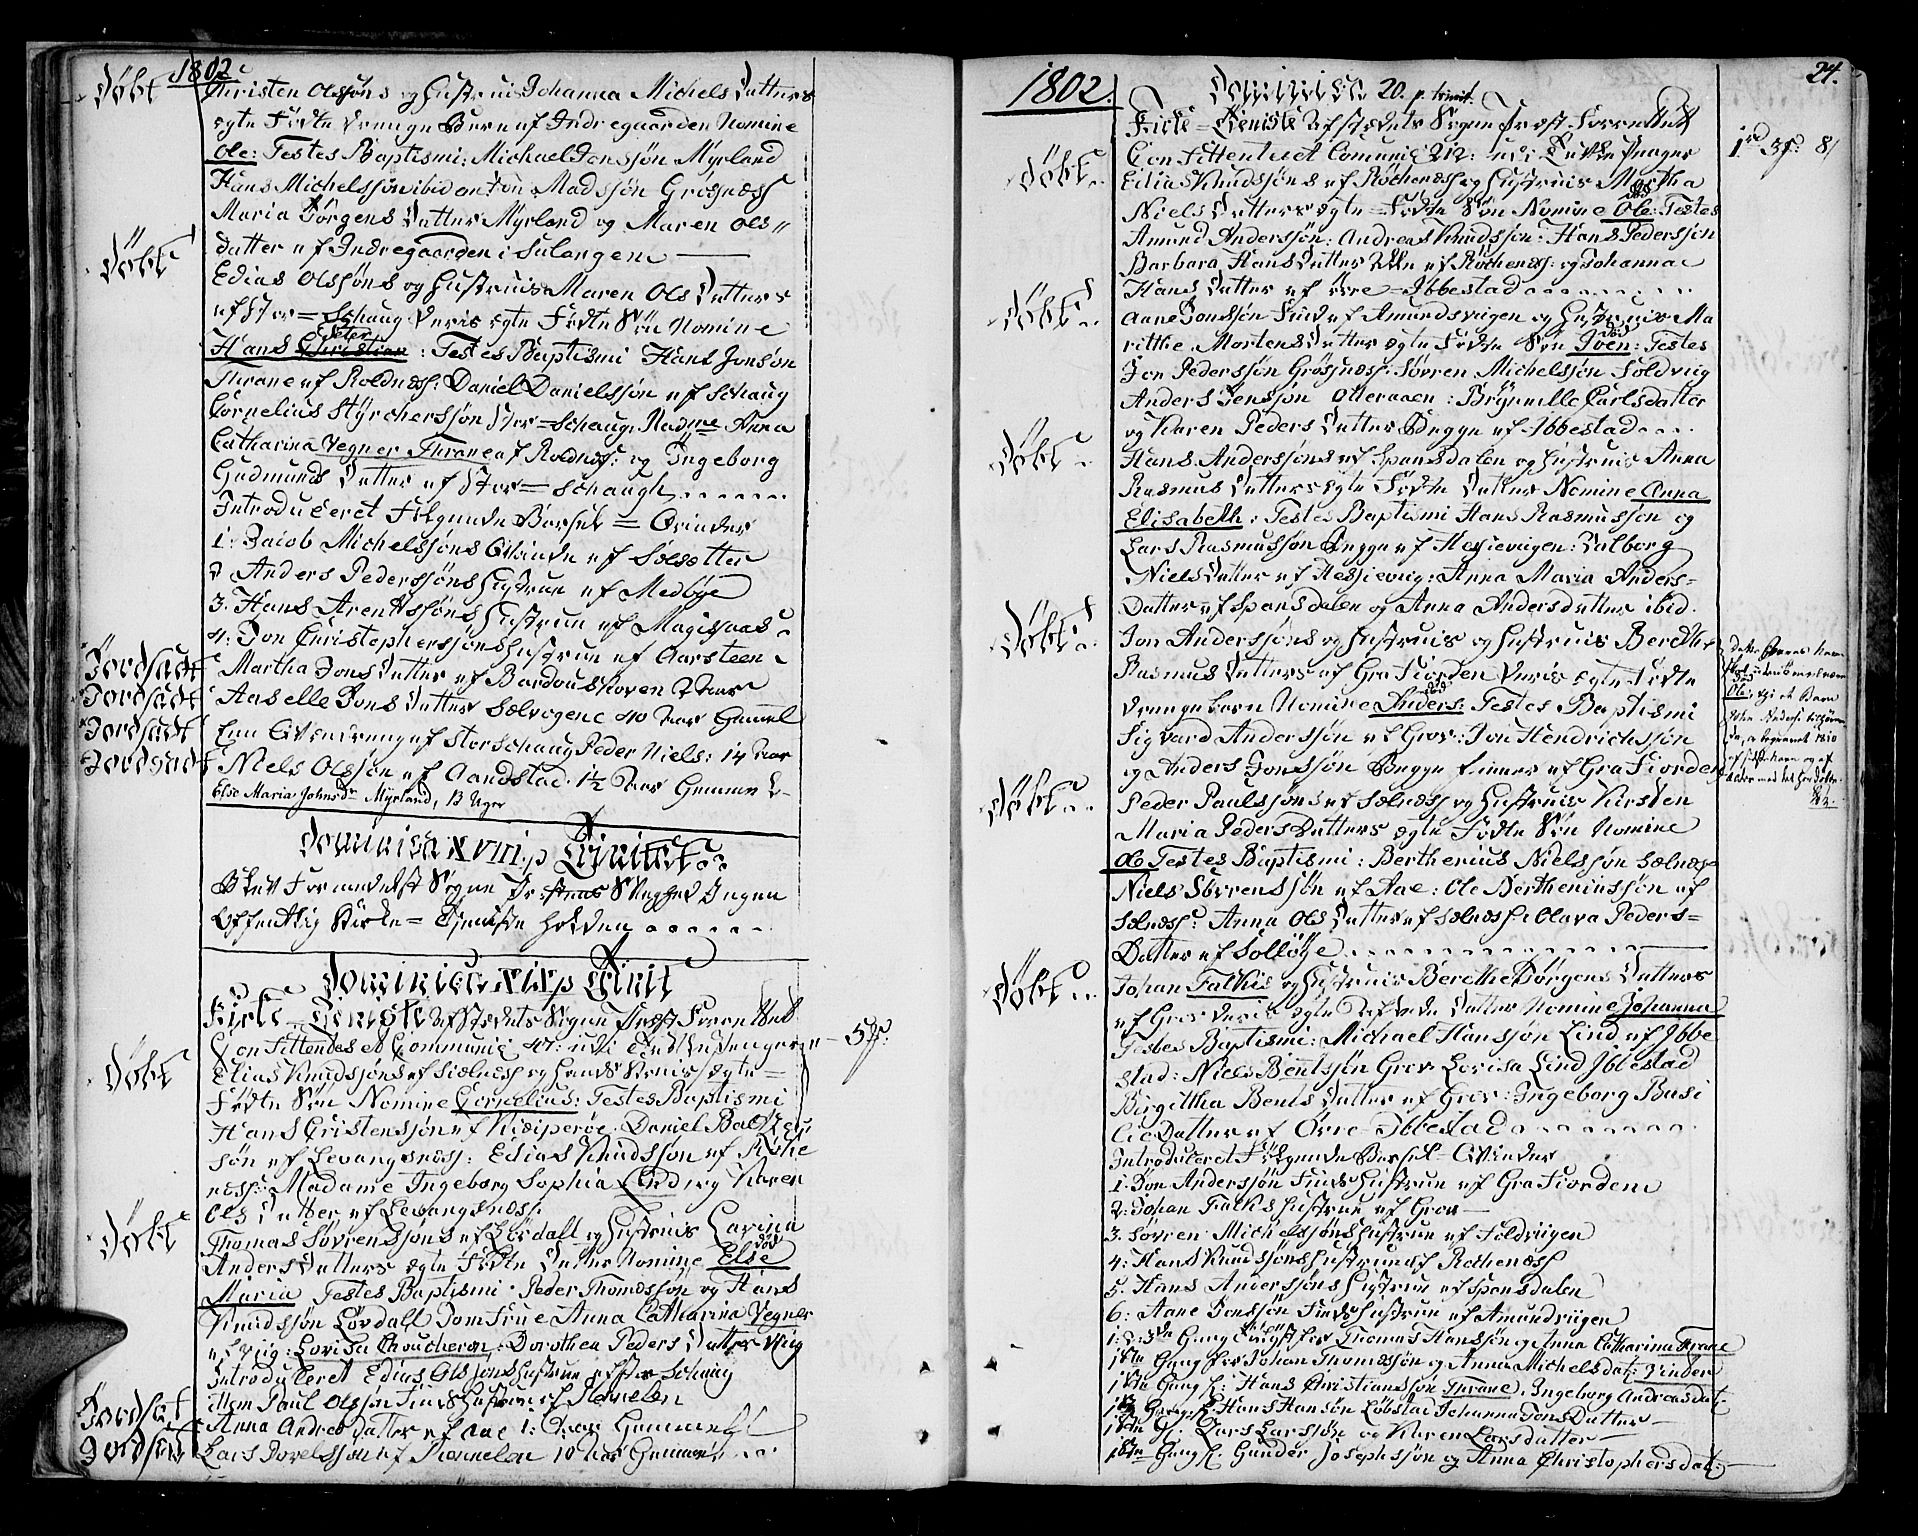 1802.
Døbt
Christen Olssøns og Hustrues Johanna Michels Datters
egte Fødte Drenge Barn af Indregaarden Nomine
Ole: Testes Baptismi: Michael Jonssøn Myrland
Hans Michelssøn ibid Anton Madssøn Grøsnæss
Maria Jørgens Datter Myrland og Maren Ols
datter af Indregaarden i Salangen
Døbt
Edias Olssøns og Hustrues Maren Ols Datters
af Stor=Schaug Deris egte Fødte Søn Nomine
Hans Christian: Testes Baptismi Hans Jonsøn
Thrane af Roldnæss: Daniel Danielssøn af Schaug
Cornelius Hyrcherssøn Stor=Schaug, Madme Anna
Catharina Vegner Thrane af Roldnæss: og Ingeborg
Gudmunds Datter af Stor=Schaug
Introduceret Følgende Barsel=Qvinder
1: Jacob Michelssøns Qvinde af Sølsetter
2 Anders Pederssøns Hustrue af Medbye
3. Hans Arentssøns Hustrue af Magisaas
4: Jon Christopherssøns Hustrue af Aarsteen
Jordsadt Martha Jons Datter af Bardouskoven 2 Aar
Jordsadt Aaselle Jons Datter Sælvogene 40 Aar Gammel
Jordsadt Een Qvendreng af Storschaug Peder Niels: 14 Aar
Jordsadt Niels Olssøn af Aandstad 1½ Aar Gammel
Else Maria Johnsdr Myrland, 13 Uger
Dominica XVIII p Trinitat:
Blev Formedelst Sogne Præstens Svaghed Ingen
Offentlig Kirke=Tjeniste Holden
Dominica XIX p Trinit
Kirke=Tieniste af Stedets Sogne Præst Forrettet
Confitentes et Communic 47:
5
Døbt
Elias Knudssøns af Sælnæss og Hands Konis egte
Fødte Søn Nomine Cornelius: Testes Baptismi
Hans Cristenssøn af Kiæiperøe: Daniel Baltzer
søn af Levangsnæss: Edias Knudssøn af Røke
næss: Madame Ingeborg Sophia Lind og Karen
Ols Datter af Levangsnæss.
Døbt
Thomas Søvrenssøns af Lørdall og Hustrues Carina
Anders Datters egte Fødte Datter Nomine Else
død
Maria Testes Baptismi: Peder Thomassøn og Hans
Knudssøn Lørdall Jomfrue Anna Catharina Vegner
af Vig: Lovisa Choucheron: Dorothea Peders Datter Vig
Introduceret Edias Olssøns Hustrue af Stor Schaug
Item Paul Olssøn Fins Hustrue af Rønelen
Jordsat Anna Andreas Datter af Aae 1: Aar Gammel
Jordsat Lars Povelssøn af Rønnelen 10 Aar Gammel
1802.
24.
Dominica 20. p. trinit.
Kirke=Tieniste af Stedets Sogne Præst Forrettet
Confitentes et Comunic 212:
1
Døbt
Elias Knudssøns af Røchenæss og Hustrues Martha
Niels Datters egte Fødte Søn Nomine Ole: Testes
død
Amund Anderssøn: Andreas Knudssøn: Hans Pederssøn
Barbara Hans Datter alle af Røchenæss: og Johanna
Hans Datter af øvre=Ibbestad
Døbt
Aane Jonssøn Find af Amundsvigen og Hustrues Ma
ritthe Mortens Datter egte Fødte Søn Iven: Testes
død
Jon Pederssøn Grøsnæss: Søvren Michelssøn Foldvig
Anders Jenssøn Otteraaen: Brynnille Carlsdatter
og Karen Peders Datter Begge af Ibbestad
Døbt
Hans Anderssøns af Spansdalen og Hustrues Anna
Rasmus Datters egte Fødte Datter Nomine Anna
Elisabeth: Testes Baptismi Hans Rasmussøn og
Lars Rasmussøn Begge af Hessievigen: Valborg
Niels Datter af Hessievig: Anna Maria Anders=
Datter af Spansdalen og Anna Andersdatter ibid.
Døbt
Jon Anderssøns og Hustrues og Hustrues Berethe
Rasmus Datters af Gra Fiorden Deris egte Fødte
Drenge barn Nomine Anders: Testes Baptismi
død
Sigvard Anderssøn af Grov: Jon Hendrichssøn
og Anders Jonssøn Begge Finner af Gra Fiorden
Dette Barns Navn
Ole,
Døbt
Peder Paulssøns af Sælnæss og Hustrues Kirsten
Maria Peders Datters egte Fødte Søn Nomine
Ole Testes Baptismi: Bertherius Nielssøn Sælnæss
Niels Søvrenssøn af Aae: Ole Bertheriussøn af
Sælnæss: Anna Ols Datter af Sælnæss: Olava Peders=
Datter af Solløye
Døbt
Johan Falkis og Hustrues Berethe Jørgens Datters
af Grov Deris egte Datter Nomine Johanna
Testes Baptismi: Michael Hanssøn Lind af Ibbe
stad: Niels Bentssøn Grov Lovisa Lind Ibbestad
Birgittha Bents Datter af Grov: Ingeborg Basi
lie Datter af Øvre Ibbestad
Introduceret Følgende Barsel=Qvinder
1. Jon Anderssøn Fins Hustrue af Gra Fiorden
2: Johan Falks Hustrue af Grov
3. Søvren Michelssøns Hustrue af Foldvigen
4: Hans Knudssøns Hustrue af Rothenæss
5. Hans Anderssøns Hustrue af Spansdalen
6: Aane Jonssøn Finds Hustrue af Amundvigen
1: 2: 3de Gang Thomas Hanssøn og Anna Catharina Thrane
1ste Gang for Johan Thomæssøn og Anna Michelsdat:
1ste Gang f: Hans Christianssøn Thrane. Ingeborg Andreasdat
1ste Gang f: Hans Hansøn Løbstad Johanna Jons Datter
1ste f: Lars Larssøn og Karen Larsdatter
1ste Gang f: Gunder Josephssøn og Anna Christophersdat: